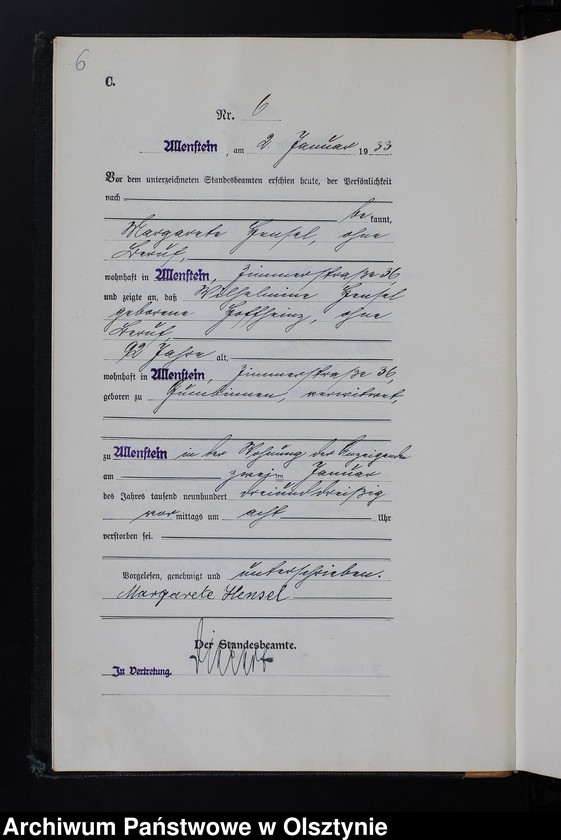 6
C.
Nr. 6
Allenstein, am 2. Januar 1933.
Vor dem unterzeichneten Standesbeamten erschien heute, der Persönlichkeit
nach
be kannt,
Margarete Hensel, ohne
Beruf,
wohnhaft in Allenstein, Zimmerstraße 36
und zeigte an, daß Wilhelmine Hensel
geborene Hoffheinz, ohne
Beruf,
92 Jahre alt,
wohnhaft in Allenstein, Zimmerstraße 36,
geboren zu Gumbinnen, verwitwet,
zu Allenstein in der Wohnung der Anzeigende
am zweiten Januar
des Jahres tausend neunhundert dreiunddreißig
vor mittags um acht Uhr
verstorben sei.
Vorgelesen, genehmigt und unterschrieben.
Margarete Hensel
Der Standesbeamte.
In Vertretung.
Archiwum Państwowe w Olsztynie